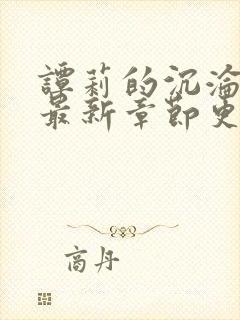 譚莉的沉淪
最新章節更
商丹